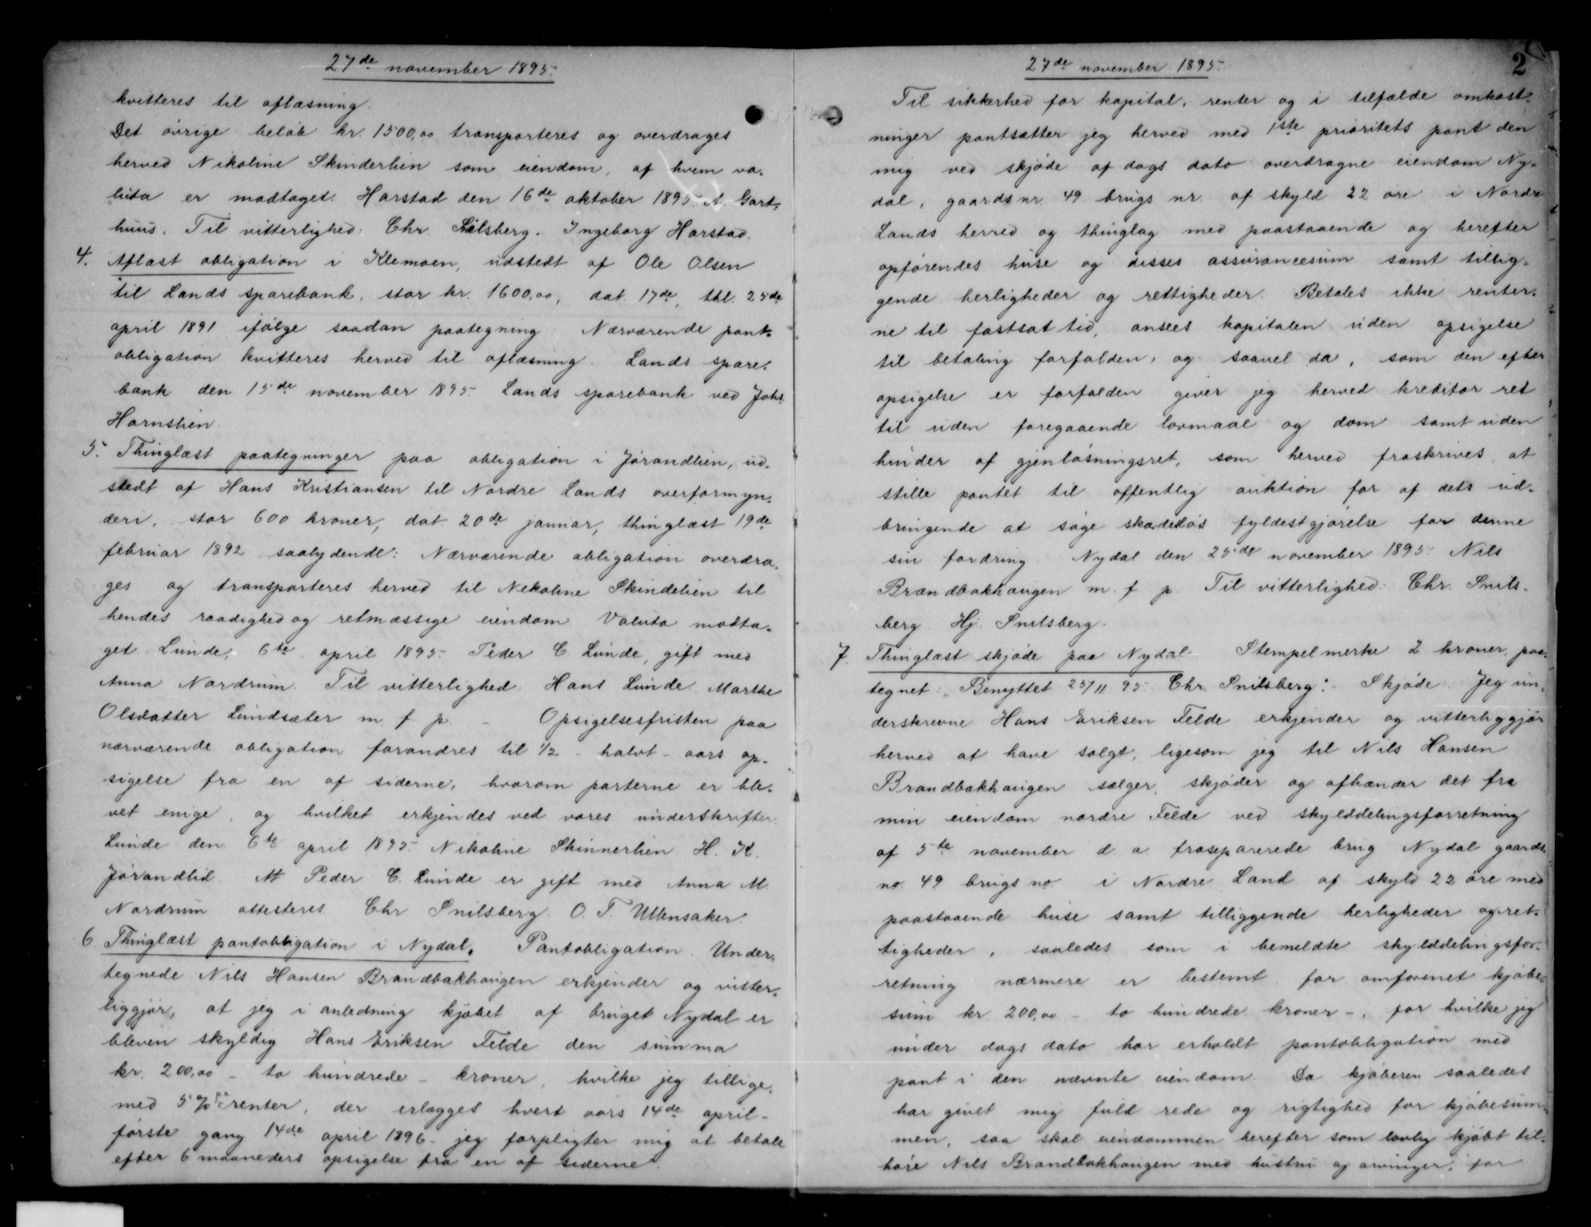 27de november 1895.
kvitteres til aflæsning.
Det øvrige beløb kr. 1500,00 transporteres og overdrages
herved Nikoline Skinderlien som eiendom, af hvem va-
luta er modtaget. Harstad den 16de oktober 1895. A. Gart-
huus. Til vitterlighed: Chr. Snilsberg. Ingeborg Harstad.
4. Aflæst obligation i Klemoen, udstedt af Ole Olsen
til Lands sparebank, stor kr. 1600,00, dat. 17de, thl. 25de
april 1891 ifølge saadan paategning: Nærværende pant-
obligation kvitteres herved til aflæsning. Lands spare-
bank den 15de november 1895. Lands sparebank ved Johs
Hornslien.
5. Thinglæst paategninger paa obligation i Jørandlien, ud-
stedt af Hans Kristiansen til Nordre Lands overformyn-
deri, stor 600 kroner, dat. 20de januar, thinglæst 19de
februar 1892 saalydende: Nærværende obligation overdra-
ges og transporteres herved til Nekoline Skindelien til
hendes raadighed og retmæssige eiendom Valuta modta-
get. Lunde, 6te april 1895. Peder C. Lunde, gift med
Anna Nordrum. Til vitterlighed: Hans Lunde. Marthe
Olsdatter Lundsæter m. f. p. – Opsigelsesfristen paa
nærværende obligation forandres til 1/2 - halvt - aars op-
sigelse fra en af siderne, hvorom parterne er ble-
vet enige, og hvilket erkjendes ved vores underskrifter.
Lunde den 6te april 1895. Nikoline Skinnerlien H. K.
Jørandlid. At Peder C. Lunde er gift med Anna M.
Nordrum attesteres Chr Snilsberg. O. T. Ullensaker.
6. Thinglæst pantobligation i Nydal. Pantobligation. Under-
tegnede Nils Hansen Brandbakhaugen erkjender og vitter-
liggjør, at jeg i anledning kjøbet af bruget Nydal er
bleven skyldig Hans Eriksen Felde den summa
kr. 200,00 - to hundrede - kroner, hvilke jeg tillige-
med 5 % renter, der erlægges hvert aars 14de april -
første gang 14de april 1896 - jeg forpligter mig at betale
efter 6 maaneders opsigelse fra en af siderne.
27de november 1895.
2
Til sikkerhed for kapital, renter og i tilfælde omkost-
ninger pantsætter jeg herved med 1ste prioritets pant den
mig ved skjøde af dags dato overdragne eiendom Ny-
dal, gaards nr. 49 brugs nr. af skyld 22 øre i Nordre
Lands herred og thinglag med paastaaende og herefter
opførendes huse og disses assurancesum samt tillig-
gende herligheder og rettigheder. Betales ikke renter-
ne til fastsat tid, ansees kapitalen uden opsigelse
til betaling forfalden, og saavel da, som den efter
opsigelse er forfalden giver jeg herved kreditor ret
til uden foregaaende lovmaal og dom samt uden
hinder af gjenløsningsret, som herved fraskrives, at
stille pantet til offentlig auktion for af dets ud-
bringende at søge skadesløs fyldestgjørelse for denne
sin fordring. Nydal den 25de november 1895. Nils
Brændbakhaugen m. f. p. Til vitterlighed: Chr. Snils-
berg. Hj. Snilsberg.
7. Thinglæst skjøde paa Nydal. Stempelmerke 2 kroner, paa-
tegnet: "Benyttet 25/11 95. Chr. Snilsberg". Skjøde. Jeg un-
derskrevne Hans Eriksen Felde erkjender og vitterliggjør
herved at have solgt, ligesom jeg til Nils Hansen
Brandbakhaugen sælger, skjøder og afhænder det fra
min eiendom nordre Felde ved skylddelingsforretning
af 5te november d. a. fraseparerede brug Nydal gaards
no. 49 brugs no. i Nordre Land af skyld 22 øre med
paastaaende huse samt tilliggende herligheder og ret-
tigheder, saaledes som i bemeldte skylddelingsfor-
retning nærmere er bestemt for omforenet kjøbe-
sum kr. 200,00 - to hundrede kroner -, for hvilke jeg
under dags dato har erholdt pantobligation med
pant i den nævnte eiendom. Da kjøberen saaledes
har givet mig fuld rede og rigtighed for kjøbesum-
men, saa skal eiendommen herefter som lovlig kjøbt til-
høre Nils Brandbakhaugen med hustru og arvinger, for